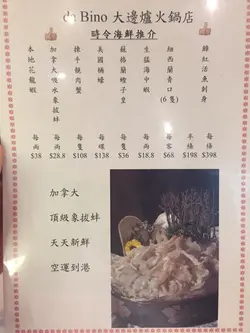 da Bino 大邊爐火鍋店
時令海鮮推介
紅活魚刺身
半條 $198
$398
紐西蘭青口(6隻)
每客 $68
生猛海中蝦
每両 $18.8
蘇格蘭蟶子皇
每隻 $36
美國桶蠔
$138
揀手靚肉蟹
每隻 $108
加拿大吸水象拔蚌
每両 $28.8
本地花龍蝦
每両 $38
加拿大
頂級象拔蚌
天天新鮮
空運到港